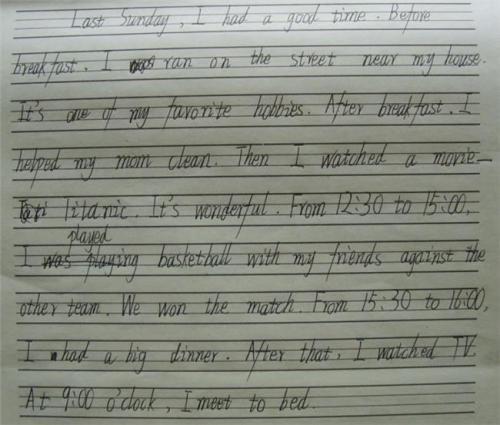 Last Sunday, I had a good time. Before
breakfast. I was ran on the street near my house.
It's one of my favorite hobbies. After breakfast. I
helped my mom clean. Then I watched a movie—
Titanic. It's wonderful. From 12:30 to 15:00,
played
I was playing basketball with my friends against the
other team. We won the match. From 15:30 to 16:00,
I had a big dinner. After that, I watched TV.
At 9:00 o'clock, I meet to bed.